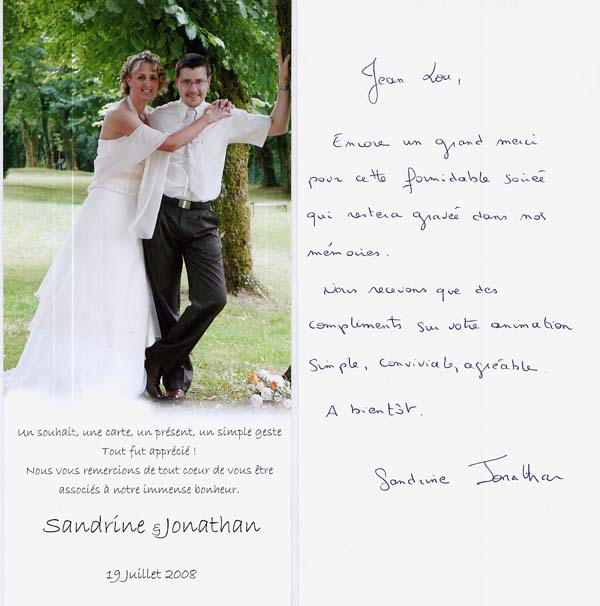 Un souhait, une carte, un présent, un simple geste
Tout fut apprécié !
Nous vous remercions de tout coeur de vous être
associés à notre immense bonheur.
Sandrine & Jonathan
19 Juillet 2008
Jean Lou,
Encore un grand merci
pour cette formidable soirée
qui restera gravée dans nos
mémoires.
Nous recevons que des
compliments sur votre animation
simple, conviviale, agréable.
A bientôt.
Sandrine Jonathan